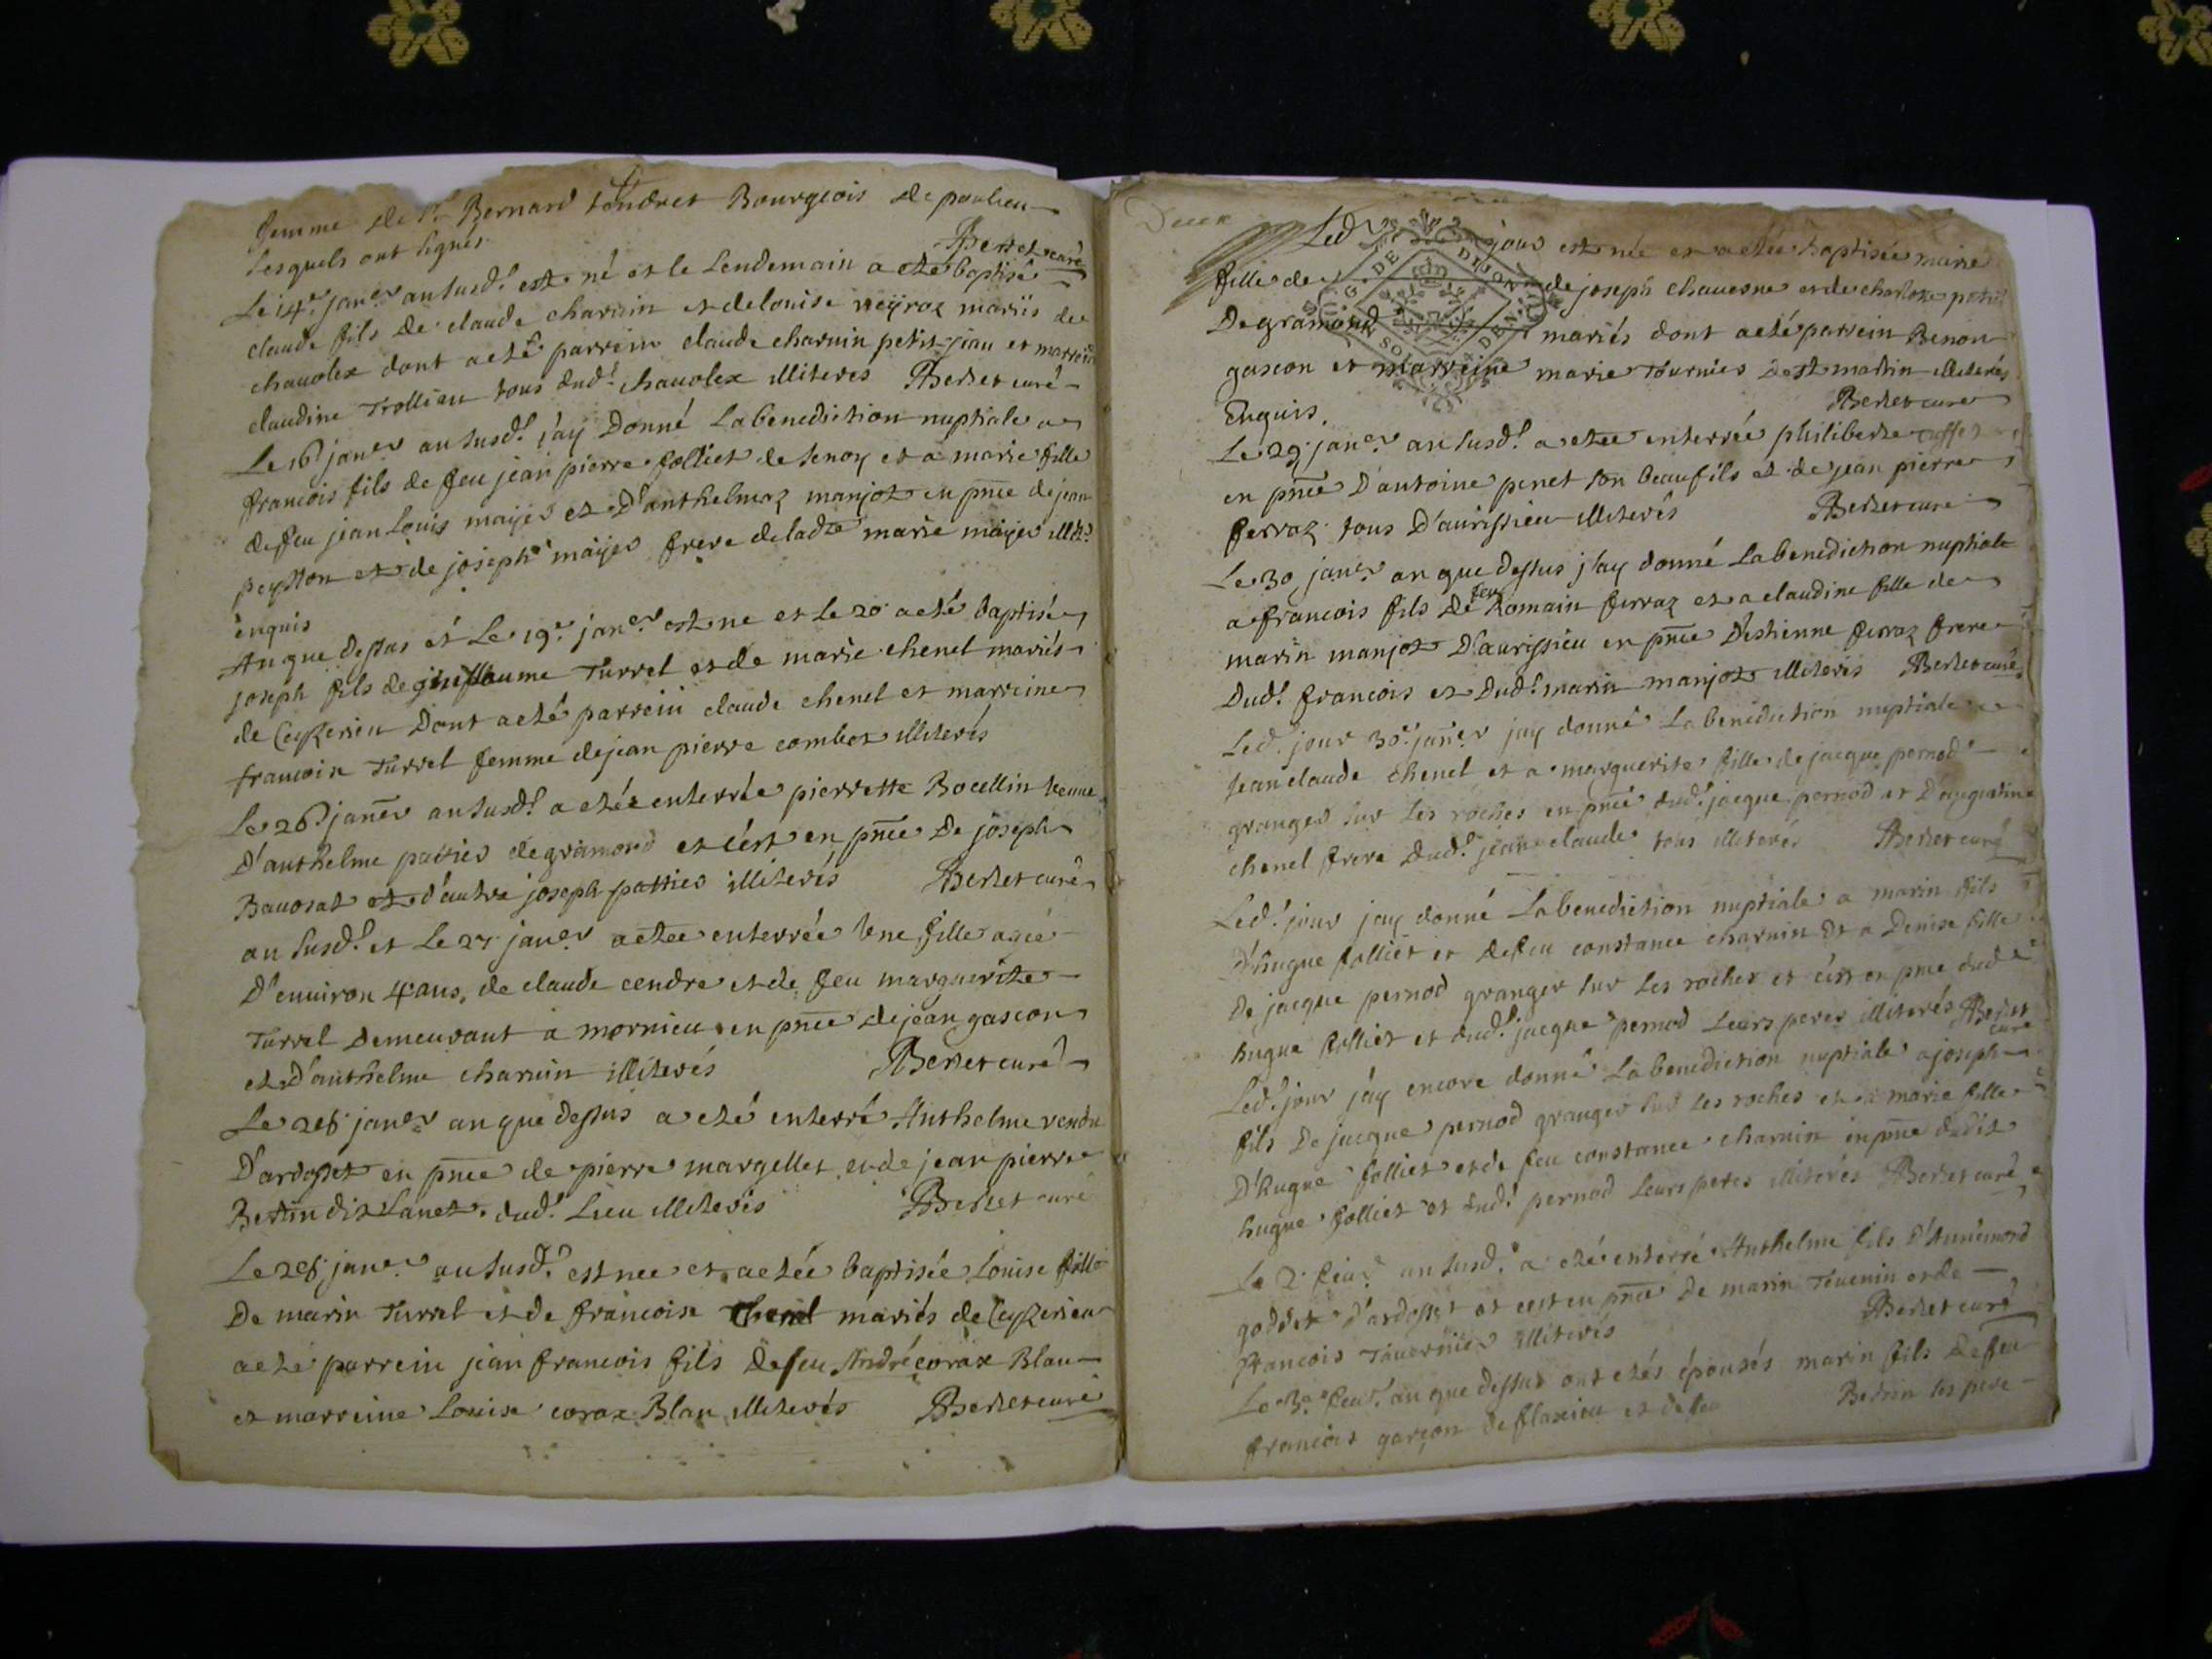 femme de Sr Bernard tendret Bourgeois de poulieu
Lesquels ont signés. Berlet curé
Le 14e janer an susd.t est né et le Lendemain a eté baptisé
claude fils de claude charuin et de louise neÿroz mariés de
chauolex dont a eté parrein claude charuin petit jean et marreine
claudine Trollieu tous dud.t chauolex illiterés Berlet curé
Le 16e janer an susd.t j'ay Donné La benediction nuptiale a
francois fils de feu jean pierre folliet de senoy et a marie fille
de feu jean Louis maÿer et D'anthelmaz manjot en pnce de jean
peysson et de joseph maÿer frere de ladte marie maÿer illit.s
enquis
An que Dessus et Le 19e janer est ne et le 20 a eté baptisé
joseph fils de guillaume Turrel et de marie chenel mariés
de Ceyzerieu Dont a eté parrein claude chenel et marreine
francoise Turrel femme de jean pierre combet illiterés
Le 26e janer an susd.t a etée enterrée pierrette Bocellin veuue
D'anthelme pattier de gramond et c'est en pnce De joseph
Bauosat et d'autre joseph pattier illiterés Berlet curé
an susd.t et Le 27 janer a etée enterrée Vne fille agée
D'enuiron 4 ans, de claude cendre et de feu marguerite
Turrel Demeurant a mornieu en pnce de jean gascon
et D'anthelme charuin illiterés Berlet curé
Le 28 janer an que dessus a eté enterré Anthelme rendu
D'ardosset en pnce de pierre margellet et de jean pierre
Bertin dit Lanet dud.t Lieu illiterés Berlet curé
Le 28 janer an susd.t est nee et a etée baptisée Louise fille
De marin Turrel et de francoise Chenel mariés de Ceyzerieu
a eté parrein jean francois fils de feu André corax Blan
et marreine Louise corax Blan illiterés Berlet curé
Deux
Led jour est née et a etée baptisée marie
fille de de joseph chauesne et de charlotte
De gramond mariés dont a eté parrein Benon
gascon et marreine marie Tournier de st martin illiterés
Enquis. Berlet curé
G. DE DIJON EN SOL DEN
Le 29 janer an susd.t a etee enterrée philiberte
en pnce D'antoine penet son beaufils et de jean pierre
ferraz tous D'aurissieu illiterés Berlet curé
Le 30 janer an que dessus j'ay donné La benediction nuptiale
a francois fils de feu Romain ferraz et a claudine fille de
marin manjot D'aurissieu en pnce D'estienne ferraz frere
Dud.t francois et Dud.t marin manjot illiterés Berlet curé
Led. jour 30e janer jay donné La benediction nuptiale a
jean claude chenel et a marguerite fille de jacque pernod
granger sur Les roches en pnce dud.t jacque pernod et D'augustine
chenel frere dud.t jean claude tous illiterés Berlet curé
Led.t jour jay donné La benediction nuptiale a marin fils
D'hugue folliet et de feu constance charuin et a Denise fille
De jacque pernod granger sur Les roches et c'est en pnce dud
hugue folliet et dud.t jacque pernod Leurs peres illiterés Berlet curé
Led.t jour j'ay encore donné La benediction nuptiale a joseph
fils De jacque pernod granger sur Les roches et a marie fille
D'hugue folliet et de feu constance charuin en pnce dudit
hugue folliet et dud.t pernod Leurs peres illiterés Berlet curé
Le 2 feur an susd.t a eté enterré Anthelme fils D'Annemond
goddet D'ardosset et cest en pnce De marin Teuenin et de
francois Tauernier illiterés Berlet curé
Le 3e feur an que dessus ont etés épousés marin fils de feu
francois garçon de flaxieu et de feu Bertin Les pere